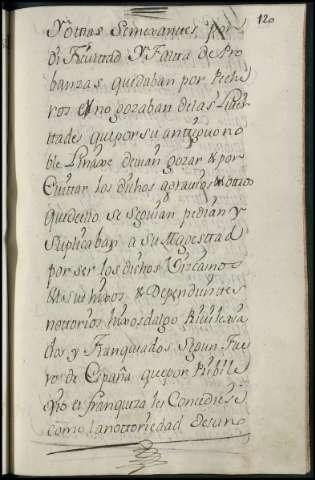 120
Y otras Semexantes por
di ficultad Y Falta de Pro
banzas quedaban por Peche
ros y no gozaban de las Liber
ttades que por su antiguo no
ble Linaxe devian gozar & por
Evittar los dichos agravios & otros
que dello se seguian pedian y
Suplicaban a su Magestad
por ser los dichos Vizcainos
& sus hixos & Dependientes
nottorios hixosdalgo
dos y Franquiados segun Fue
ro de España que por Pribile
xio et franqueza les Concediese
como la nottoriedad de su no